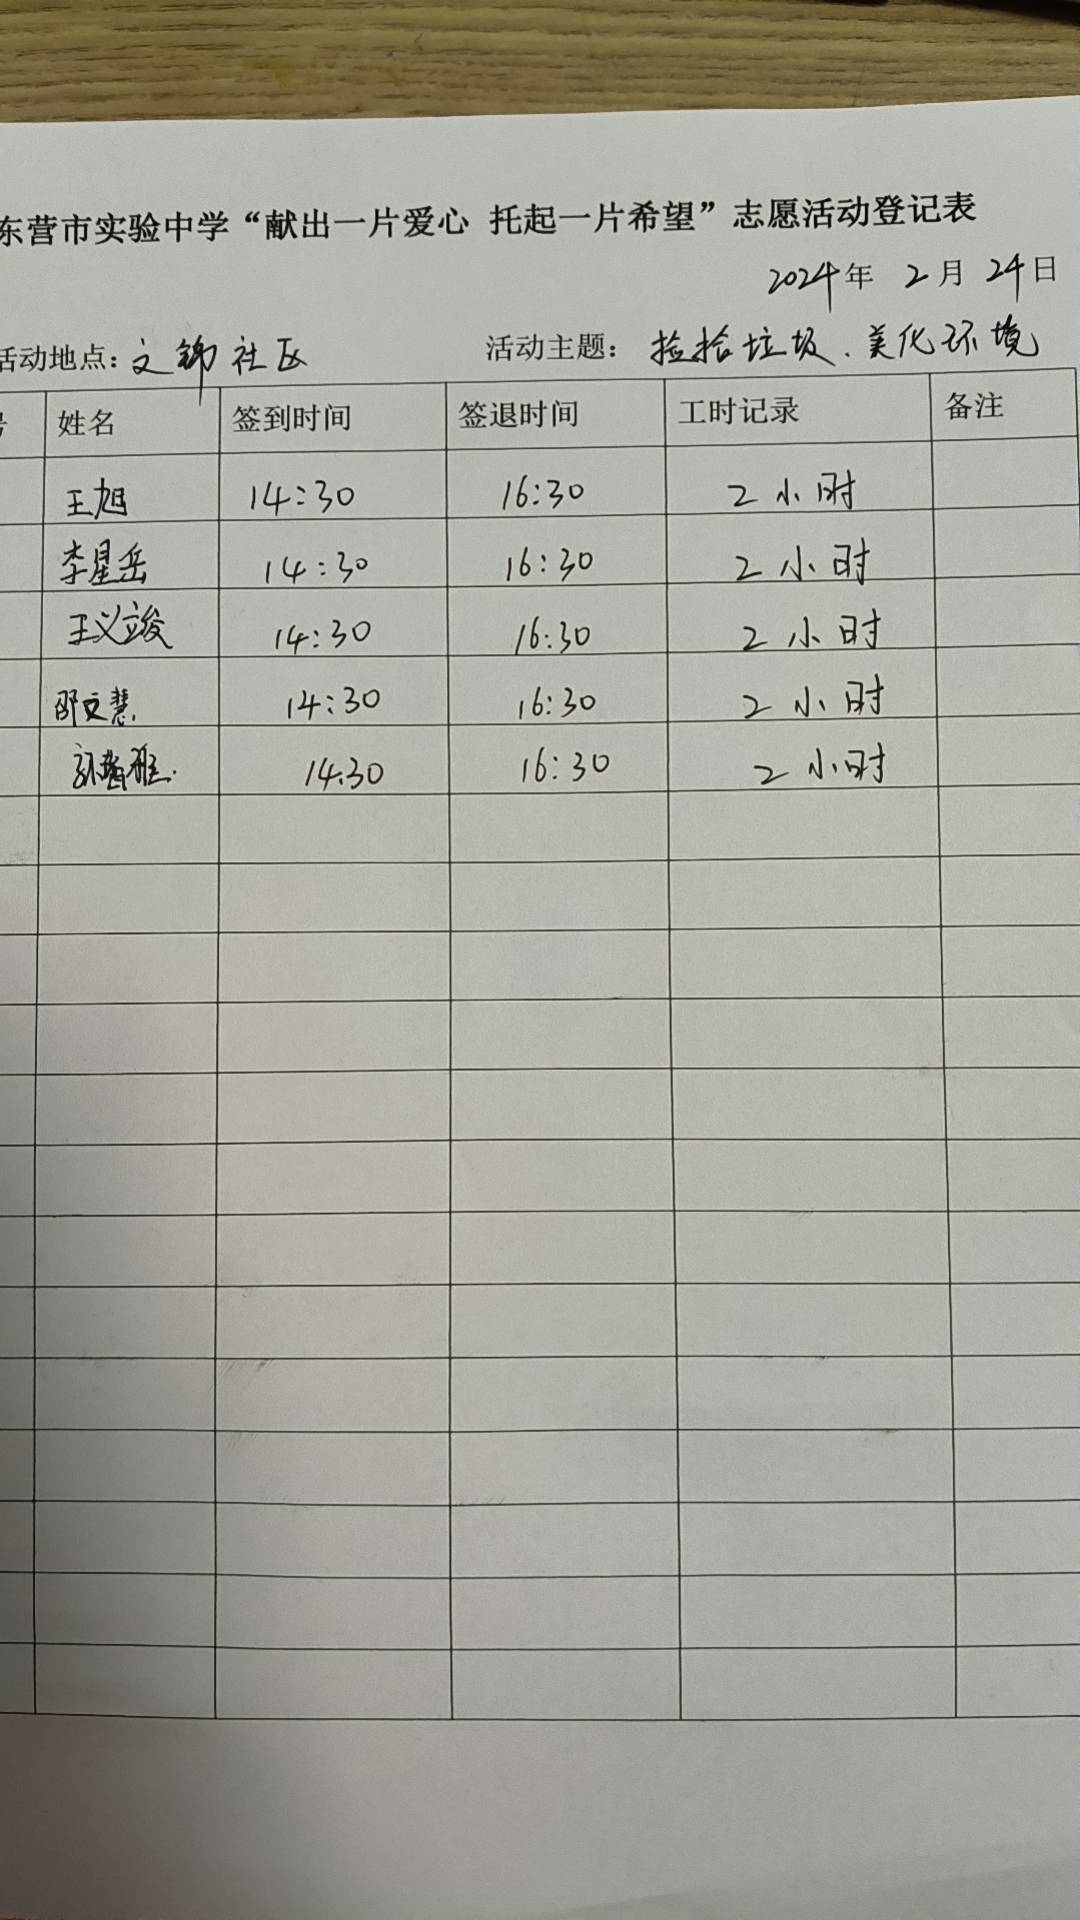 东营市实验中学“献出一片爱心 托起一片希望”志愿活动登记表
2024年 2月 24日
活动地点：文锦社区 活动主题：捡拾垃圾、美化环境
号 姓名 签到时间 签退时间 工时记录 备注
王旭 14:30 16:30 2小时
李星岳 14:30 16:30 2小时
王义竣 14:30 16:30 2小时
邵文慧 14:30 16:30 2小时
14.30 16:30 2小时